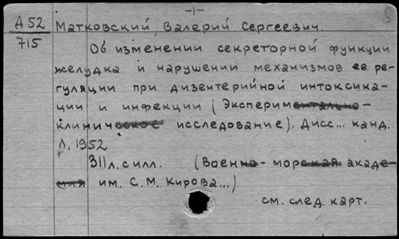 -1-
А52 Матковский, Валерий Сергеевич.
715
Об изменении секреторной функции
желудка и нарушении механизмов ее ре-
гуляции при дизентерийной интоксика-
ции и инфекции (Экспериментально-
клиническое исследование). Дисс... канд.
Л., 1952
311 л. с илл. (Военно-морская акаде-
мия им. С. М. Кирова...)
см. след. карт.